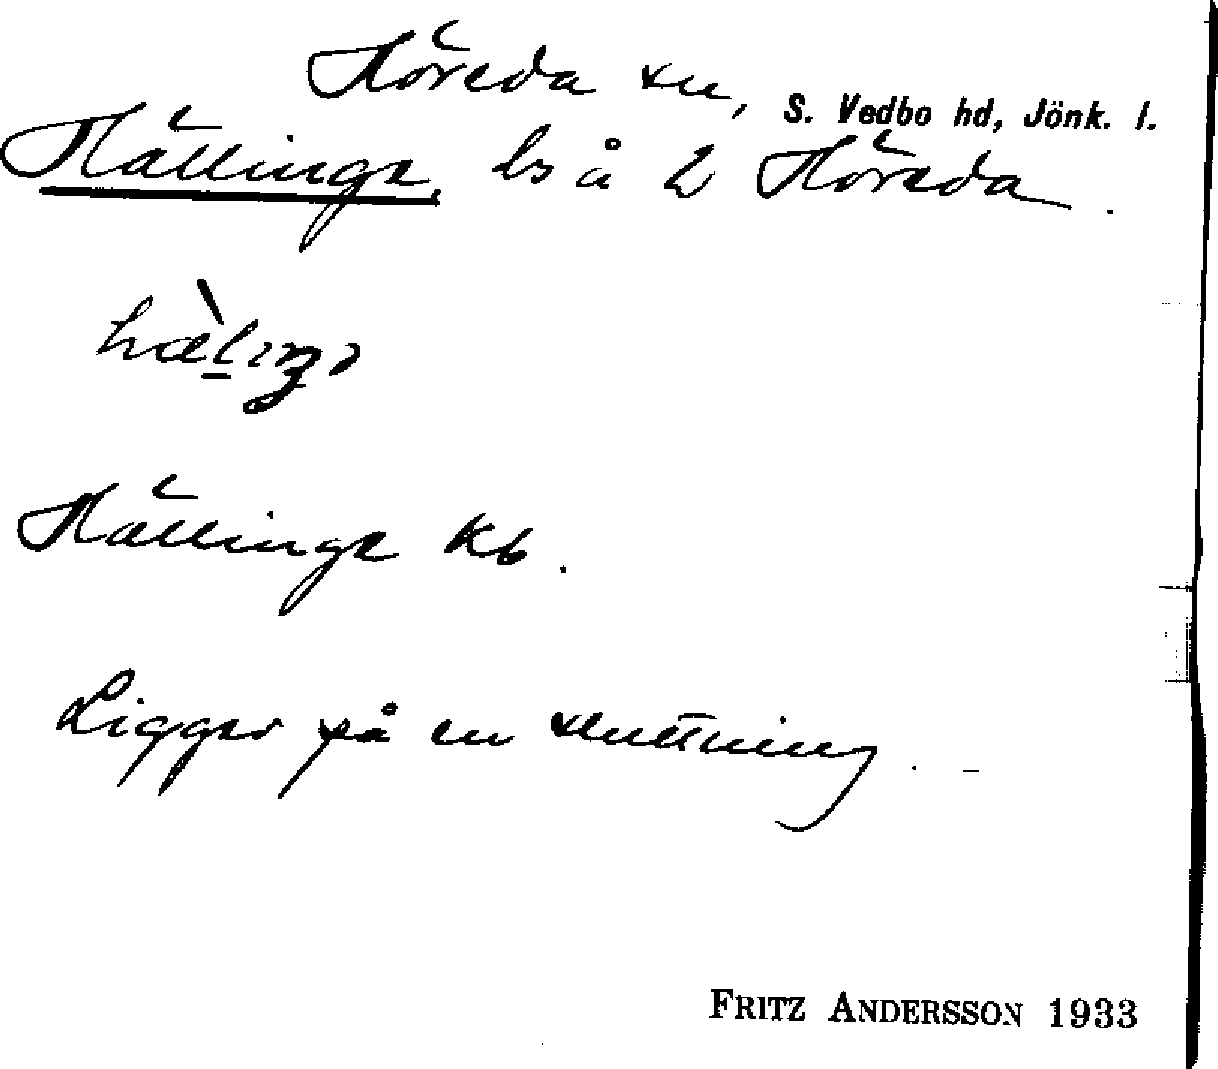 Höreda sn, S. Vedbo hd, Jönk. l.
Hällinge, ls å 2 Höreda.
Hällinge Kb.
Ligger på en sluttning. -
FRITZ ANDERSSON 1933